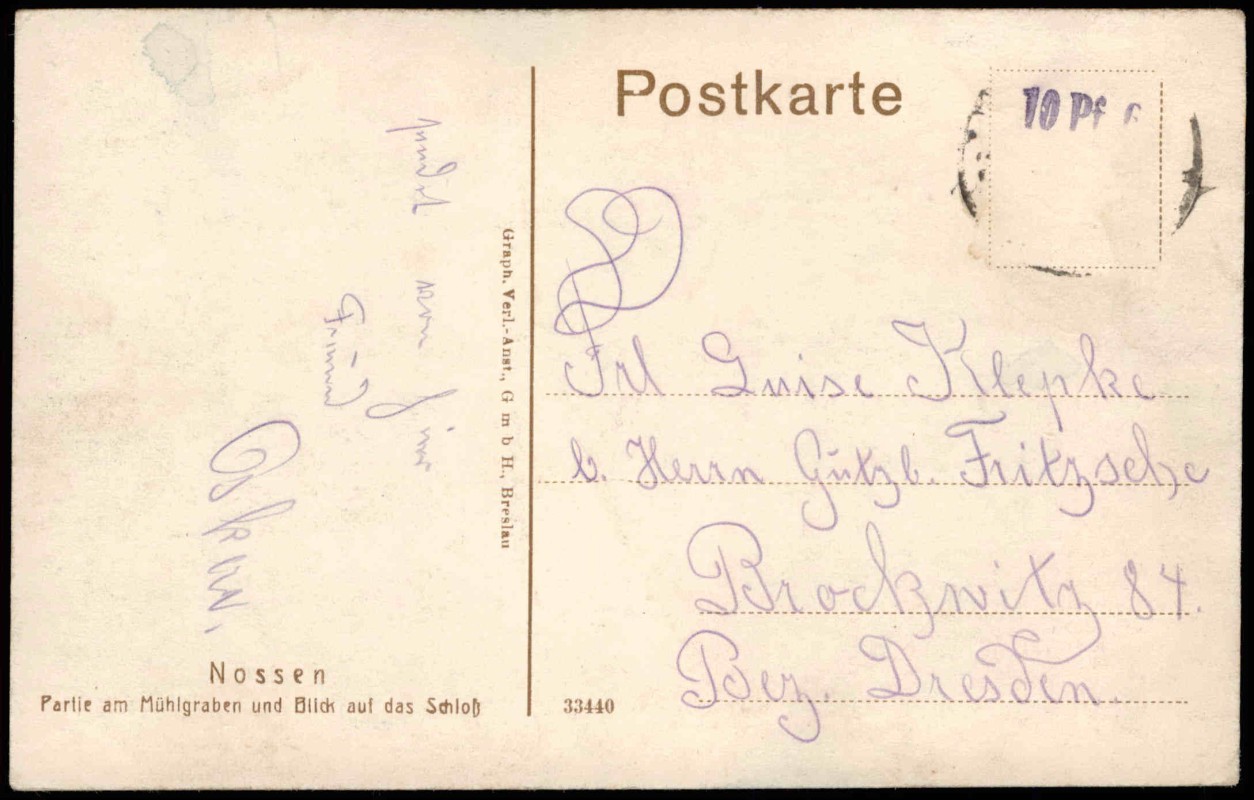 Postkarte
10 Pf
Frl Luise Klepke
b. Herrn Gutzb. Fritzsche
Brockwitz 84.
Bez. Dresden.
sendet
von Ihren
Freund
Oskar.
Graph. Verl.-Anst., G m b H., Breslau
Nossen
Partie am Mühlgraben und Blick auf das Schloß
33440